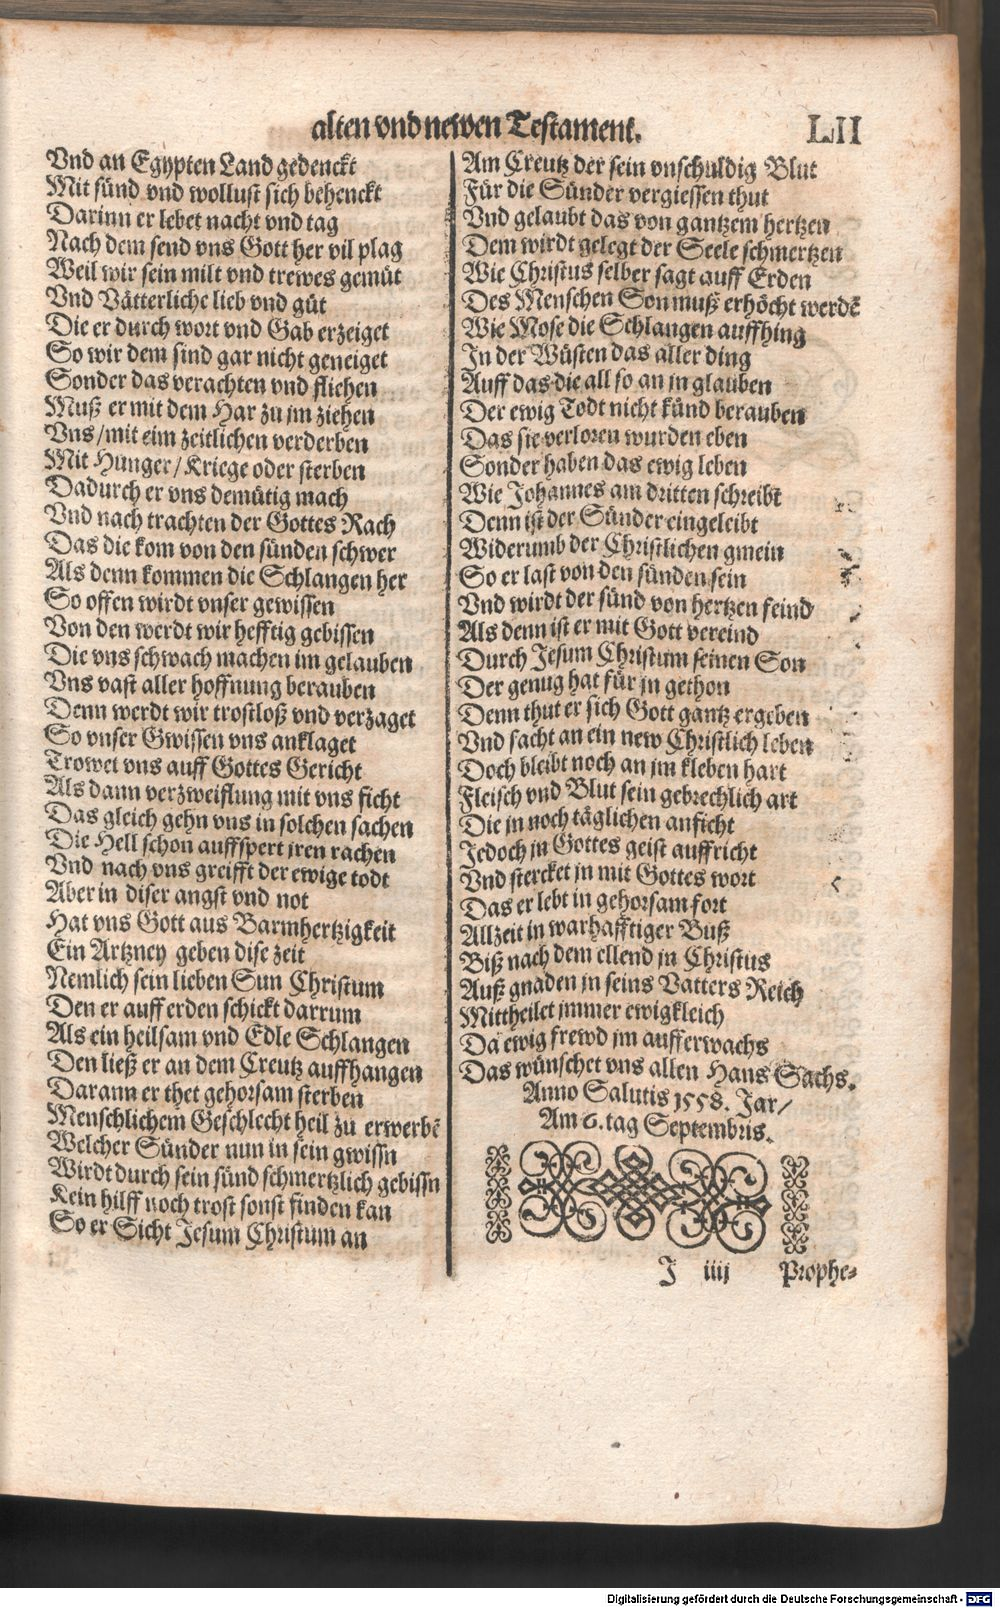 alten vnd newen Testament. LII
Vnd an Egypten Land gedenckt
Mit sünd vnd wollust sich behenckt
Darinn er lebet nacht vnd tag
Nach dem send vns Gott her vil plag
Weil wir sein milt vnd trewes gemüt
Vnd Vätterliche lieb vnd güt
Die er durch wort vnd Gab erzeiget
So wir dem sind gar nicht geneiget
Sonder das verachten vnd fliehen
Muß er mit dem Har zu jm ziehen
Vns/mit eim zeitlichen verderben
Mit Hunger/Kriege oder sterben
Dadurch er vns demütig mach
Vnd nach trachten der Gottes Rach
Das die kom von den sünden schwer
Als denn kommen die Schlangen her
So offen wirdt vnser gewissen
Von den werdt wir hefftig gebissen
Die vns schwach machen im gelauben
Vns vast aller hoffnung berauben
Denn werdt wir trostloß vnd verzaget
So vnser Gwissen vns anklaget
Trowet vns auff Gottes Gericht
Als dann verzweiflung mit vns ficht
Das gleich gehn vns in solchen sachen
Die Hell schon auffspert jren rachen
Vnd nach vns greifft der ewige todt
Aber in diser angst vnd not
Hat vns Gott aus Barmhertzigkeit
Ein Artzney geben dise zeit
Nemlich sein lieben Sun Christum
Den er auff erden schickt darrum
Als ein heilsam vnd Edle Schlangen
Den ließ er an dem Creutz auffhangen
Darann er thet gehorsam sterben
Menschlichem Geschlecht heil zu erwerbē
Welcher Sünder nun in sein gwissn
Wirdt durch sein sünd schmertzlich gebissn
Kein hilff noch trost sonst finden kan
So er Sicht Jesum Christum an
Am Creutz der sein vnschuldig Blut
Für die Sünder vergiessen thut
Vnd gelaubt das von gantzem hertzen
Dem wirdt gelegt der Seele schmertzen
Wie Christus selber sagt auff Erden
Des Menschen Son muß erhöcht werdē
Wie Mose die Schlangen auffhing
In der Wüsten das aller ding
Auff das die all so an jn glauben
Der ewig Todt nicht künd berauben
Das sie verloren wurden eben
Sonder haben das ewig leben
Wie Johannes am dritten schreibt
Denn ist der Sünder eingeleibt
Widerumb der Christlichen gmein
So er last von den sünden sein
Vnd wirdt der sünd von hertzen feind
Als denn ist er mit Gott vereind
Durch Jesum Christum seinen Son
Der genug hat für jn gethon
Denn thut er sich Gott gantz ergeben
Vnd facht an ein new Christlich leben
Doch bleibt noch an jm kleben hart
Fleisch vnd Blut sein gebrechlich art
Die jn noch täglichen anficht
Jedoch jn Gottes geist auffricht
Vnd stercket jn mit Gottes wort
Das er lebt in gehorsam fort
Allzeit in warhafftiger Buß
Biß nach dem ellend jn Christus
Auß gnaden in seins Vatters Reich
Mittheilet jmmer ewigkleich
Da ewig frewd jm aufferwachs
Das wünschet vns allen Hans Sachs.
Anno Salutis 1558. Jar/
Am 6. tag Septembris.
J iiij Prophe=
Digitalisierung gefördert durch die Deutsche Forschungsgemeinschaft - DFG